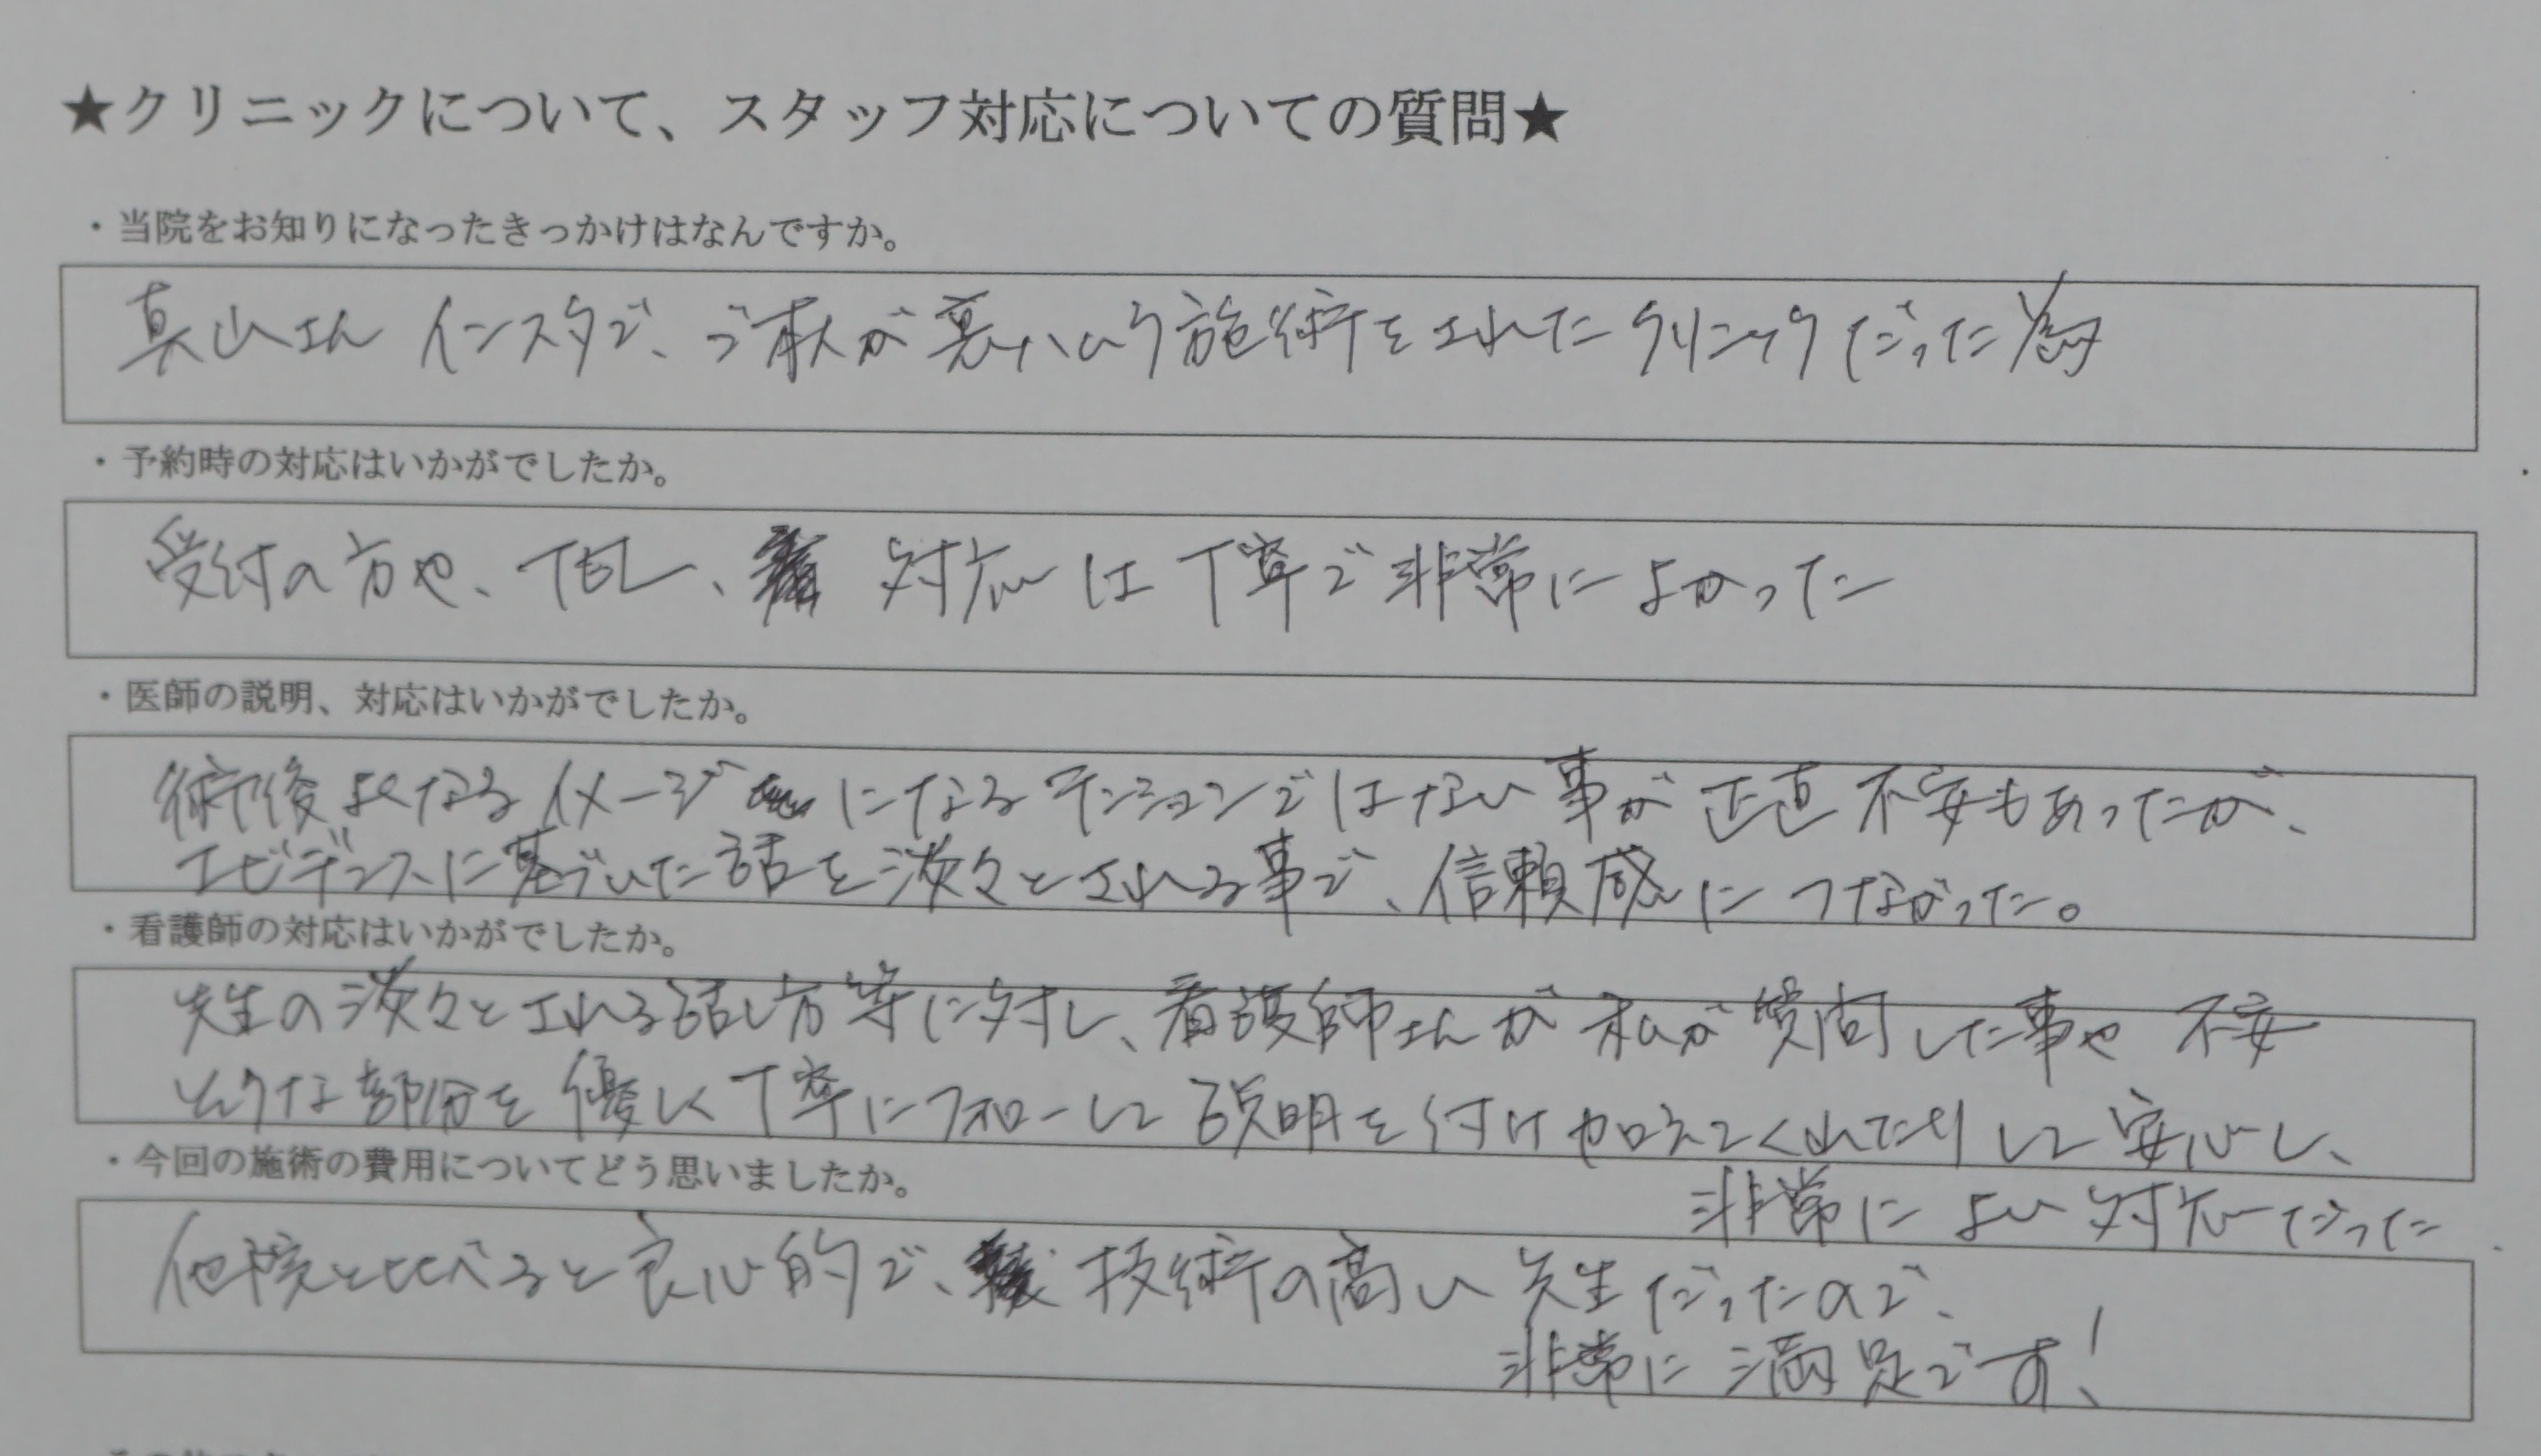 ★クリニックについて、スタッフ対応についての質問★
・当院をお知りになったきっかけはなんですか。
真山さん インスタで、ご本人が裏ハムラ施術をされたクリニックだった為
・予約時の対応はいかがでしたか。
受付の方や、TEL、対応は丁寧で非常によかった
・医師の説明、対応はいかがでしたか。
術後よくなるイメージになるテンションではない事が正直不安もあったが、
エビデンスに基づいた話を淡々とされる事で、信頼感につながった。
・看護師の対応はいかがでしたか。
先生の淡々とされる話し方等に対し、看護師さんが私が質問した事や不安
そうな部分を優しく丁寧にフォローして説明を付け加えてくれたりして安心し、
非常によい対応だった
・今回の施術の費用についてどう思いましたか。
他院と比べると良心的で、技術の高い先生だったので、
非常に満足です!